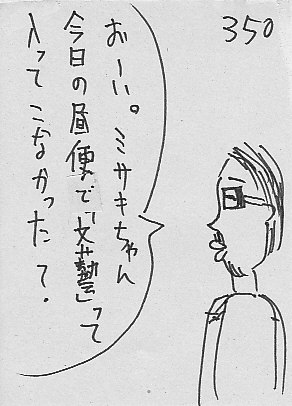 350
おーい。ミサキちゃん
今日の昼便で「文藝」って
入ってこなかったて.